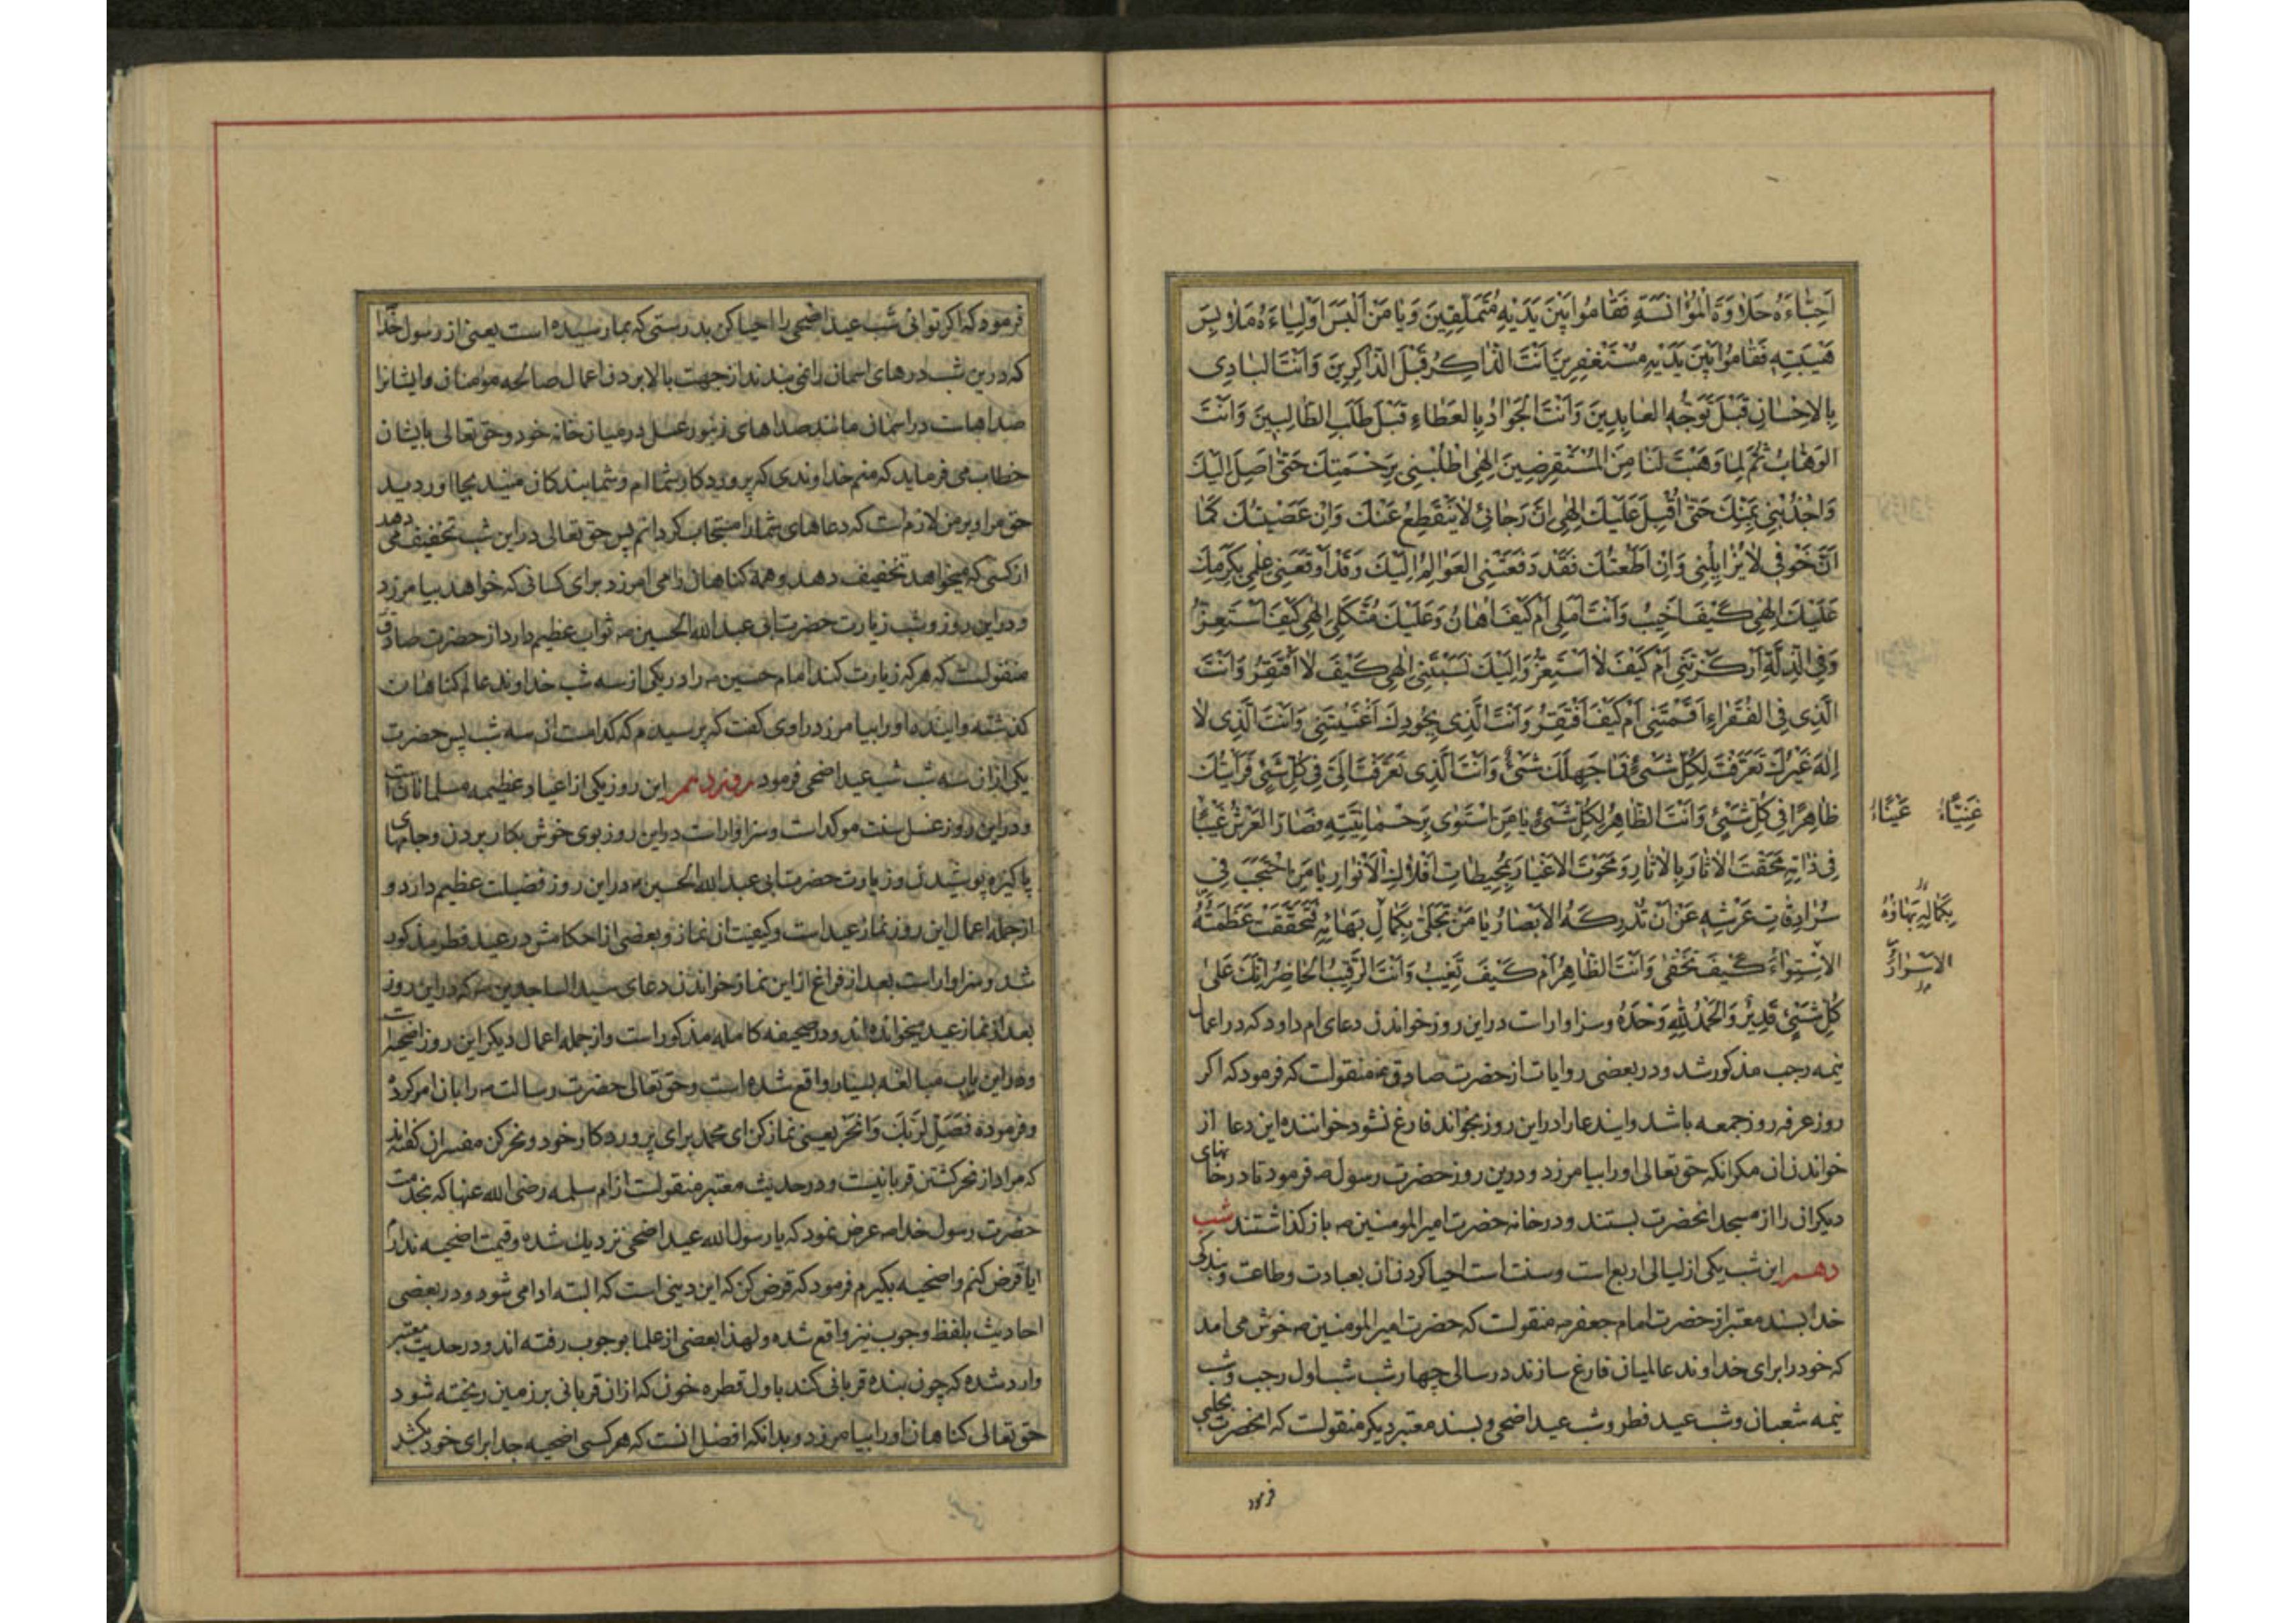 اَحِبّٰاءَهُ حَلاٰوَةَ الْمُؤٰانَسَةِ فَقٰامُوا بَيْنَ يَدَيْهِ مُتَمَلِّقِينَ وَيٰا مَنْ اَلْبَسَ اَوْلِيٰاءَهُ مَلاٰبِسَ
هَيْبَتِهِ فَقٰامُوا بَيْنَ يَدَيْهِ مُسْتَغْفِرِينَ اَنْتَ الذّٰاكِرُ قَبْلَ الذّٰاكِرِينَ وَاَنْتَ الْبٰادِى
بِالْاِحْسٰانِ قَبْلَ تَوَجُّهِ الْعٰابِدِينَ وَاَنْتَ الْجَوٰادُ بِالْعَطٰاءِ قَبْلَ طَلَبِ الطّٰالِبِينَ وَاَنْتَ
الْوَهّٰابُ ثُمَّ لِمٰا وَهَبْتَ لَنٰا مِنَ الْمُسْتَقْرِضِينَ اِلٰهِى اطْلُبْنِى بِرَحْمَتِكَ حَتّٰى اَصِلَ اِلَيْكَ
وَاجْذُبْنِى بِمَنِّكَ حَتّٰى اُقْبِلَ عَلَيْكَ اِلٰهِى اِنَّ رَجٰائِى لاٰ يَنْقَطِعُ عَنْكَ وَاِنْ عَصَيْتُكَ كَمٰا
اَنَّ خَوْفِى لاٰ يُزٰايِلُنِى وَاِنْ اَطَعْتُكَ فَقَدْ دَفَعَتْنِى الْعَوٰالِمُ اِلَيْكَ وَقَدْ اَوْقَعَنِى عِلْمِى بِكَرَمِكَ
عَلَيْكَ اِلٰهِى كَيْفَ اَخِيبُ وَاَنْتَ اَمَلِى اَمْ كَيْفَ اُهٰانُ وَعَلَيْكَ مُتَّكَلِى اِلٰهِى كَيْفَ اَسْتَعِزُّ
وَفِى الذِّلَّةِ اَرْكَزْتَنِى اَمْ كَيْفَ لاٰ اَسْتَعِزُّ وَاِلَيْكَ نَسَبْتَنِى اِلٰهِى كَيْفَ لاٰ اَفْتَقِرُ وَاَنْتَ
الَّذِى فِى الْفُقَرٰاءِ اَقَمْتَنِى اَمْ كَيْفَ اَفْتَقِرُ وَاَنْتَ الَّذِى بِجُودِكَ اَغْنَيْتَنِى وَاَنْتَ الَّذِى لاٰ
اِلٰهَ غَيْرُكَ تَعَرَّفْتَ لِكُلِّ شَىْءٍ فَمٰا جَهِلَكَ شَىْءٌ وَاَنْتَ الَّذِى تَعَرَّفْتَ اِلَىَّ فِى كُلِّ شَىْءٍ فَرَاَيْتُكَ
ظٰاهِرًا فِى كُلِّ شَىْءٍ وَاَنْتَ الظّٰاهِرُ لِكُلِّ شَىْءٍ يٰا مَنِ اسْتَوٰى بِرَحْمٰانِيَّتِهِ فَصٰارَ الْعَرْشُ غَيْبًا
فِى ذٰاتِهِ مَحَقْتَ الْاٰثٰارَ بِالْاٰثٰارِ وَمَحَوْتَ الْاَغْيٰارَ بِمُحِيطٰاتِ اَفْلاٰكِ الْاَنْوٰارِ يٰا مَنِ احْتَجَبَ فِى
سُرٰادِقٰاتِ عَرْشِهِ عَنْ اَنْ تُدْرِكَهُ الْاَبْصٰارُ يٰا مَنْ تَجَلّٰى بِكَمٰالِ بَهٰائِهِ فَتَحَقَّقَتْ عَظَمَتُهُ
الْاِسْتِوٰاءَ كَيْفَ تَخْفٰى وَاَنْتَ الظّٰاهِرُ اَمْ كَيْفَ تَغِيبُ وَاَنْتَ الرَّقِيبُ الْحٰاضِرُ اِنَّكَ عَلٰى
كُلِّ شَىْءٍ قَدِيرٌ وَالْحَمْدُ لِلّٰهِ وَحْدَهُ وسزاوارست دراین روز خواندن دعای ام داود که در اعمال
نیمه رجب مذکور شد ودر بعضی روایات از حضرت صادق ع منقولست که فرمود که اکر
روز عرفه روز جمعه باشد وایندعارا دراین روز بخواند فارغ نشود خواننده این دعا از
خواندن ان مکرانکه حق تعالی اورا بیامرزد ودرین روز حضرت رسول ص فرمود تا درخانهای
دیکرانی را از مسجد انحضرت بستند ودرخانه حضرت امیرالمومنین ع باز کذاشتند شب
دهم این شب یکی از لیالی اربع است وسنت است احیا کردن ان بعبادت وطاعت وبندکی
خدا بسند معتبر از حضرت امام جعفر ع منقولست که حضرت امیرالمومنین ع خوش می امد
که خودرا برای خداوند عالمیان فارغ سازند درسالی چهار شب شب اول رجب وشب
نیمه شعبان وشب عید فطر وشب عید اضحی وبسند معتبر دیکر منقولست که انحضرت
غَيْبًا
بِكَمٰالِهِ بَهٰاؤُهُ
الْاَسْرٰارُ
فرمود
فرمود که اکر توانی شب عید اضحی را احیا کن بدرستی که بما رسیده است یعنی از رسول خدا
که درین شب درهای اسمان را نمی بندند از جهت بالا بردن اعمال صالحه مومنان وایشانرا
صداهاست دراسمان مانند صداهای زنبور عسل درمیان خانه خود وحق تعالی بایشان
خطاب می فرماید که منم خداوندی که پروردکار شما ام وشما بندکان منید بجا اوردید
حق مرا وبر من لازم است که دعاهای شمارا مستجاب کردانم پس حق تعالی دراین شب تخفیف می دهد
از کسی که میخواهد تخفیف دهد وهمهٔ کناهان را می امرزد برای کسانی که خواهد بیامرزد
ودراین روز وشب زیارت حضرت ابی عبدالله الحسین ع ثواب عظیم دارد از حضرت صادق
منقولست که هرکه زیارت کند امام حسین ع را در یکی از سه شب خداوند عالم کناهان
کذشته واینده اورا بیامرزد راوی کفت که پرسیدم که کدامست ان سه شب پس حضرت
یکی ازان سه شب شب عید اضحی فرمود روز دهم این روز یکی از اعیاد عظیمه مسلمانان است
ودراین روز غسل سنت موکداست وسزاوارست دراین روز بوی خوش بکار بردن وجامهای
پاکیزه پوشیدن وزیارت حضرت ابی عبدالله الحسین ع دراین روز فضیلت عظیم دارد و
ازجمله اعمال این روز نماز عیداست وکیفیت ان نماز وبعضی از احکامش درعید فطر مذکور
شد وسزاوارست بعد از فراغ از این نماز خواندن دعای سیدالساجدین ع که دراین روز
بعد از نماز عید میخوانده اند ودر صحیفه کامله مذکور است وازجمله اعمال دیکر این روز اضحیه است
ودراین باب مبالغه بسیار واقع شده است وحق تعالی حضرت رسالت ص را بان امر کرده
وفرموده فَصَلِّ لِرَبِّكَ وَانْحَرْ یعنی نماز کن ای محمد برای پروردکار خود ونحر کن مفسران کفته اند
که مراد از نحر کشتن قربانیست ودر حدیث معتبر منقولست از ام سلمه رضی الله عنها که بخدمت
حضرت رسول خدا ص عرض نمود که یارسول الله عید اضحی نزدیک شده وقیمت اضحیه ندارم
ایا قرض کنم واضحیه بکیرم فرمود که قرض کن که این دینی است که البته ادا می شود ودر بعضی
احادیث بلفظ وجوب نیز واقع شده ولهذا بعضی از علما بوجوب رفته اند ودر حدیث معتبر
وارد شده که چون بنده قربانی کند باول قطره خون که ازان قربانی برزمین ریخته شود
حق تعالی کناهان اورا بیامرزد وبدانکه افضل انست که هرکسی اضحیه جدا برای خود بکشد